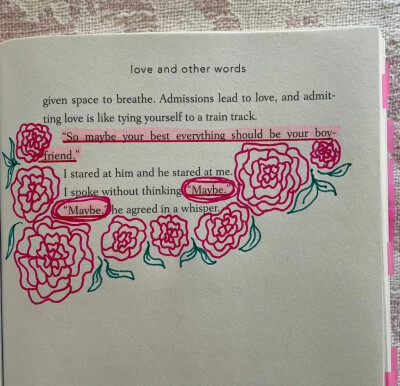 love and other words
given space to breathe. Admissions lead to love, and admit-
ting love is like tying yourself to a train track.
"So maybe your best everything should be your boy-
friend."
I stared at him and he stared at me.
I spoke without thinking. "Maybe."
"Maybe," he agreed in a whisper.